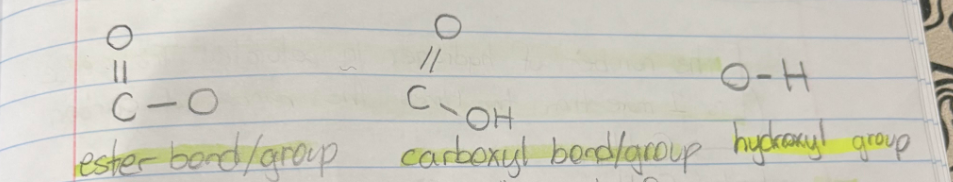 O O
|| //
C-O C-OH O-H
ester bond/group carboxyl bond/group hydroxyl group